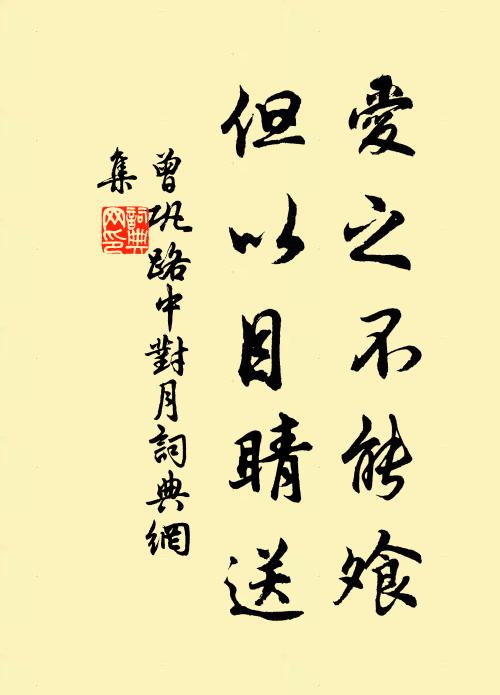 愛之不能飧
但以目睛送
曾巩路中對月詞典網
集
詞典
网印